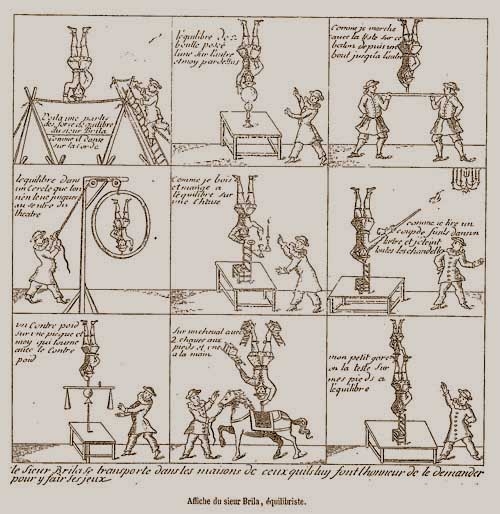 Voila une partie
des force dequilibre
du sieur Brila
comme il danse
sur la corde
lequilibre de 2
boulle posée
lune sur lautre
et moy par dessus
comme je marche
avec la teste sur ce
baton depuis un
bout jusqu'a lautre
lequilibre dans
un Cercle que lon
tire
au sentre du
theatre
comme je bois
et mange a
lequilibre sur
une
comme je tire un
coup de fusil dans un
et jeteint
toutes les chandelles
un Contre poid
sur une picque et
moy qui tourne
avec le Contre
poid
sur un cheval avec
2 aux
pieds et une
a la main
mon petit garc
on la teste sur
mes pieds a
lequilibre
le sieur Brila se transporte dans les maisons de ceux quils luy font lhonneur de le demander
pour y fair ses jeux
Affiche du sieur Brila, équilibriste.